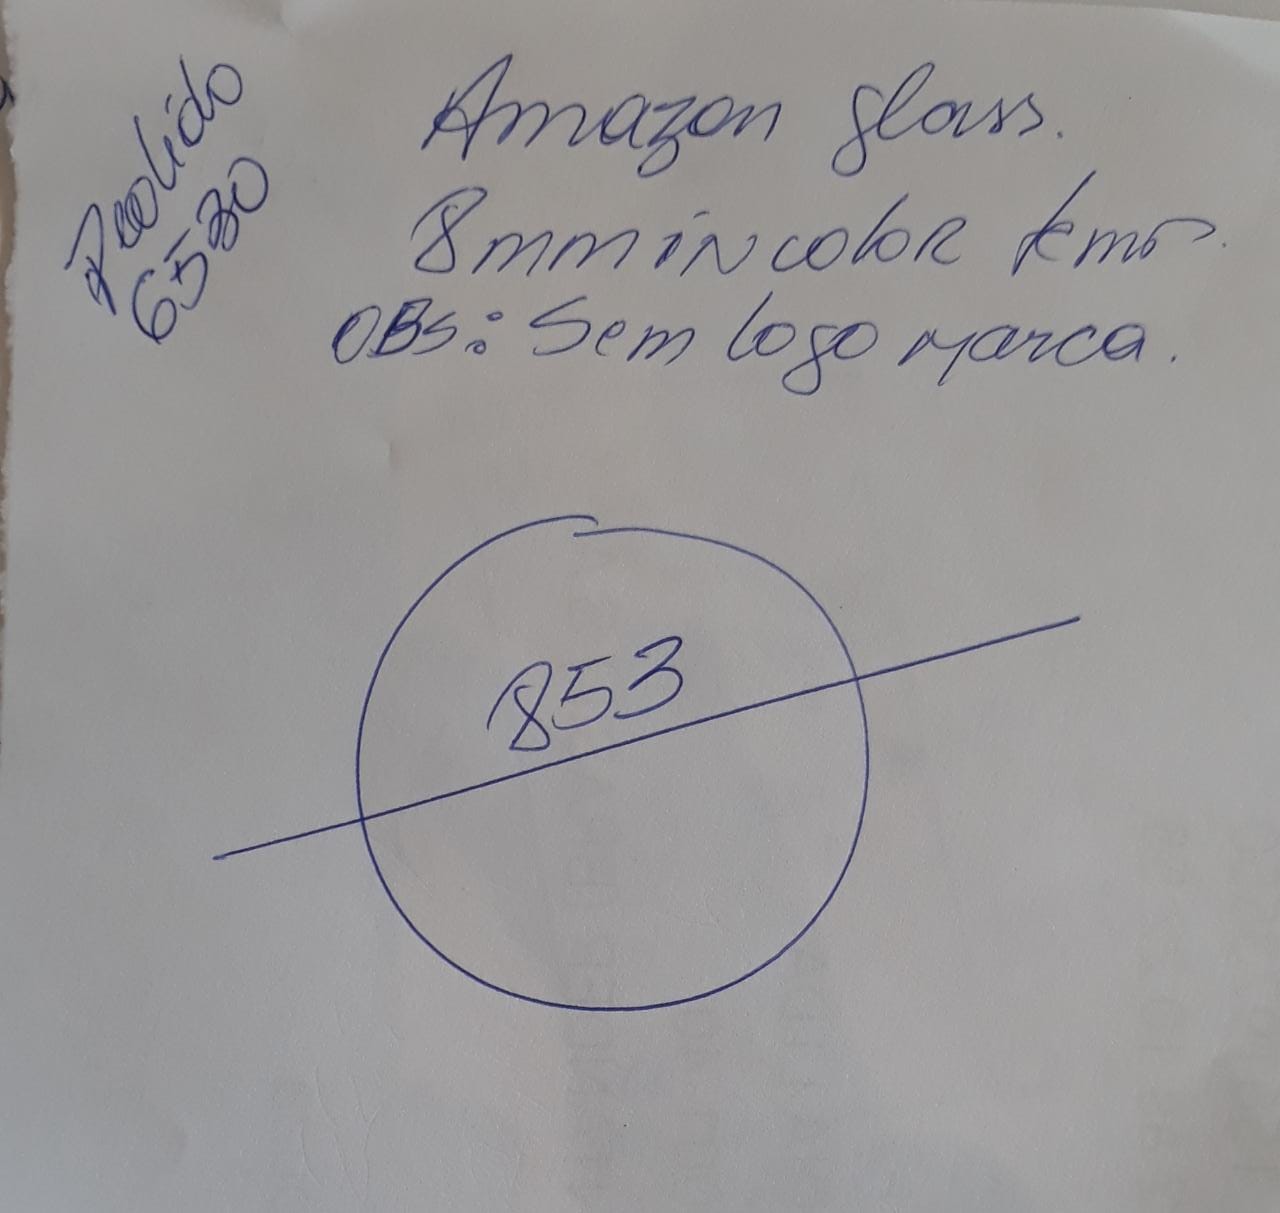 Pedido
6530
Amazon glass.
8mm incolor
OBS: Sem logo marca.
853